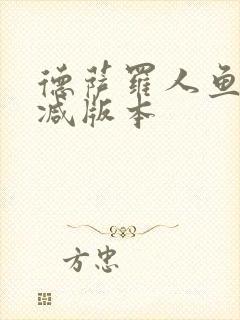 德萨罗人鱼
减版本
方忠